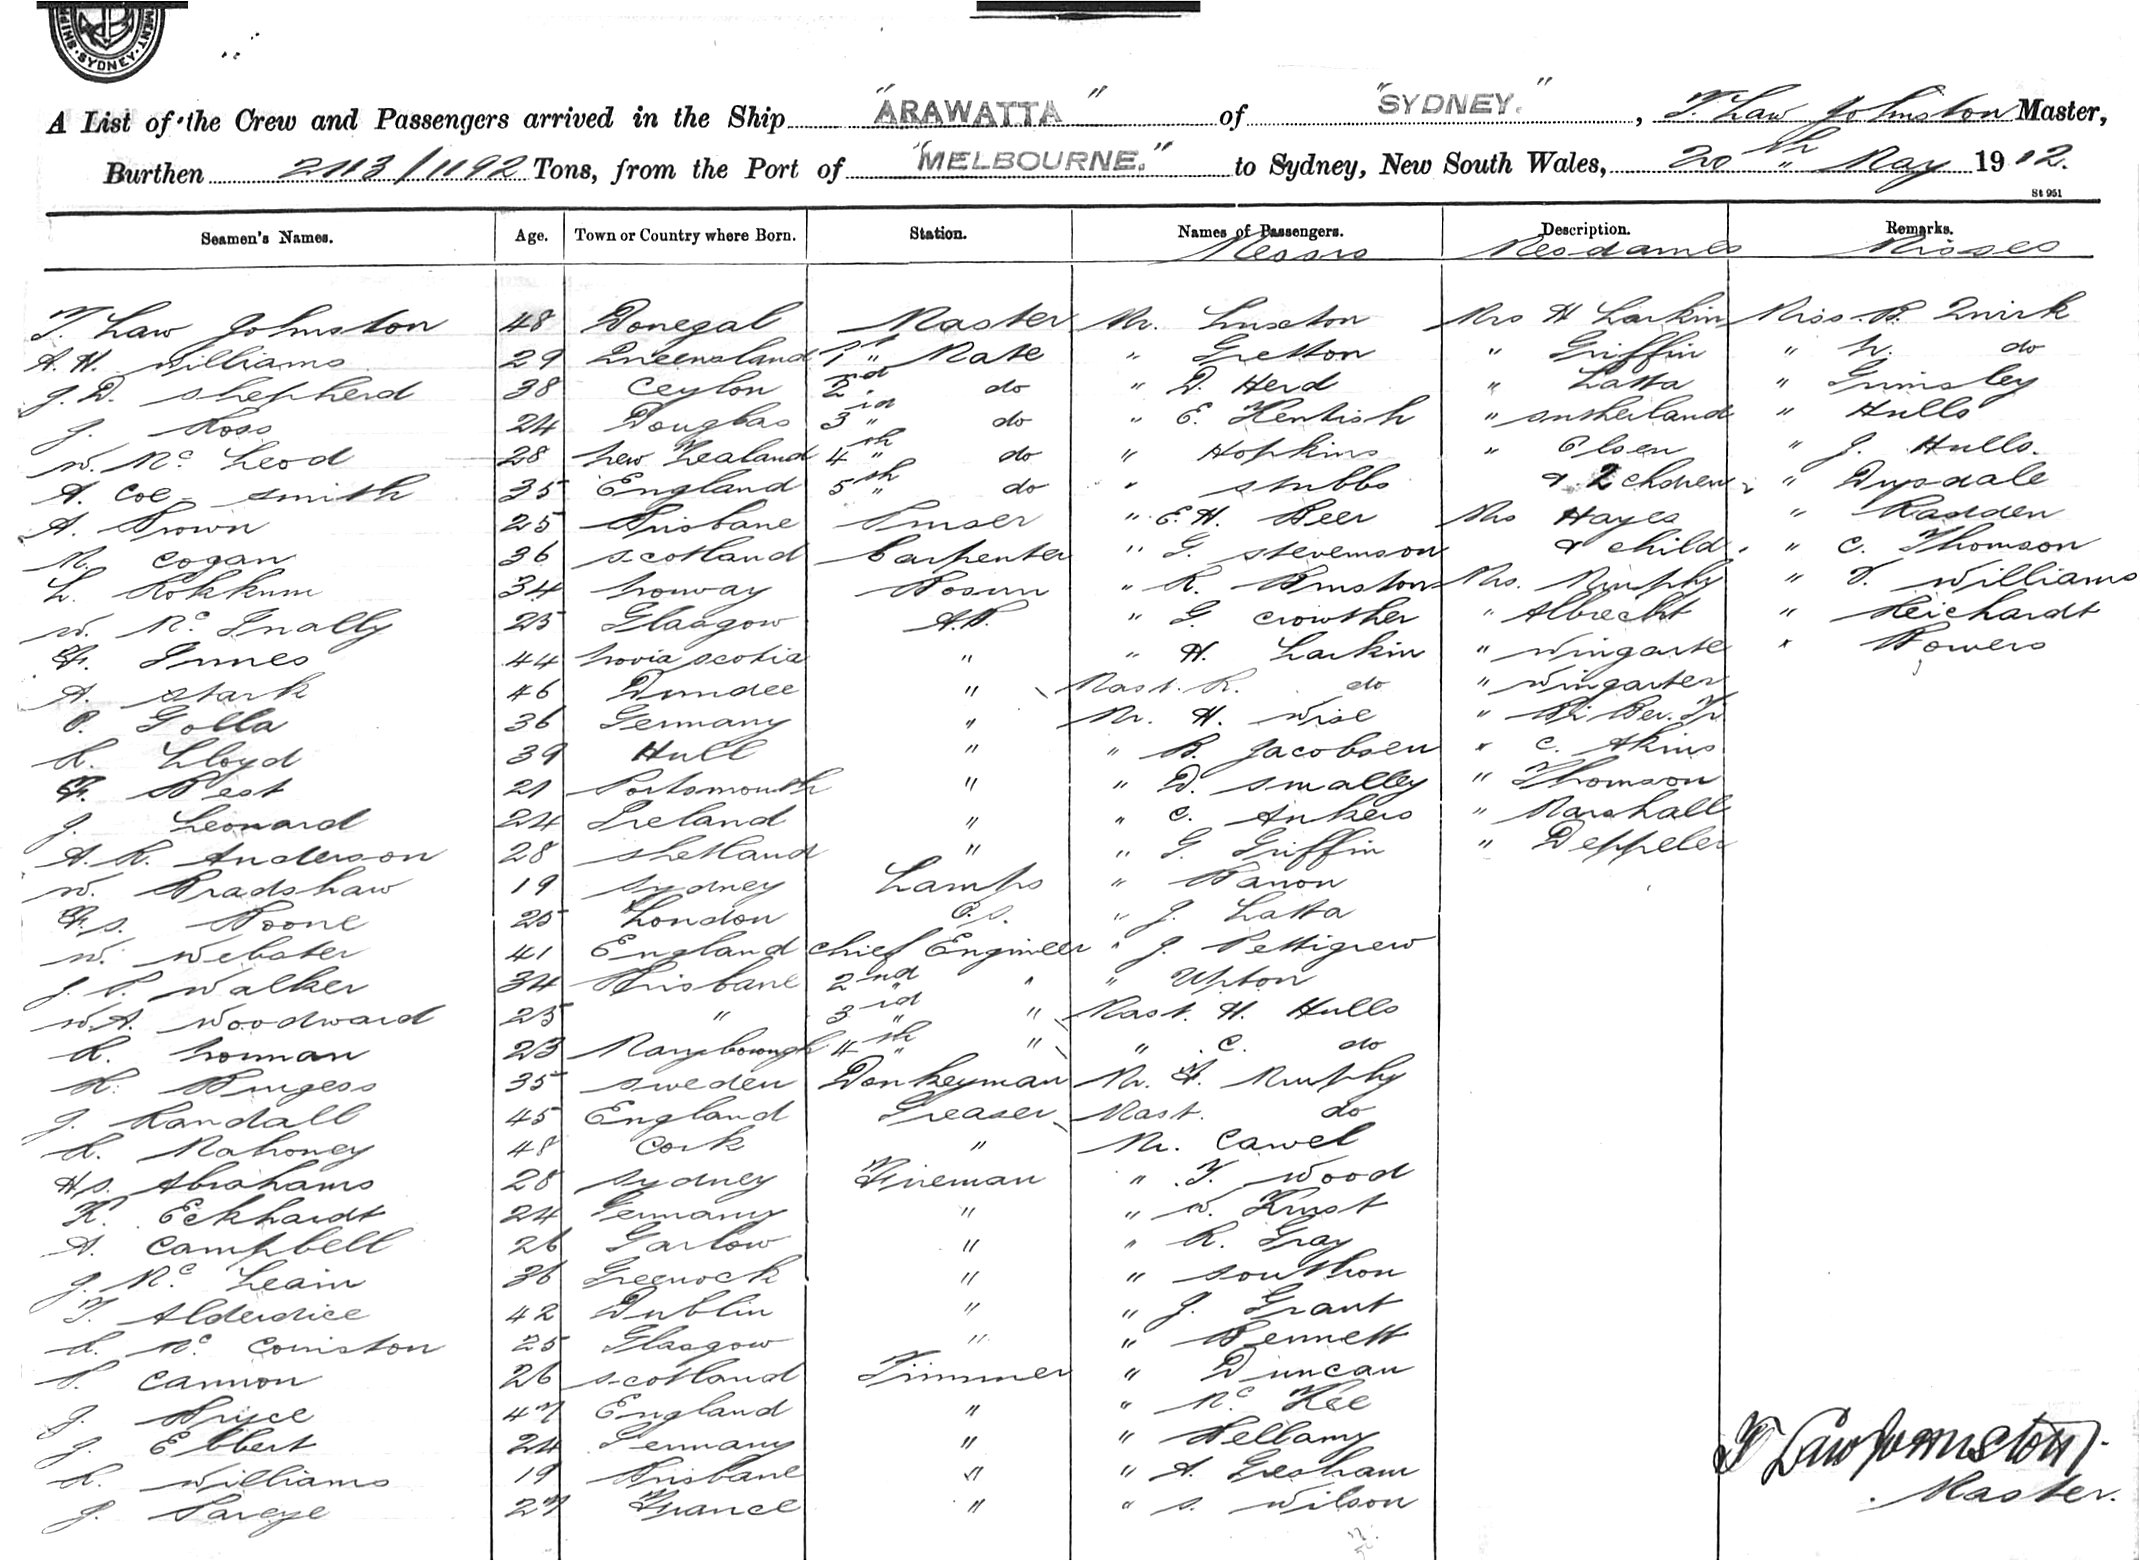 SHIP MENT · SYDNEY ·
A List of the Crew and Passengers arrived in the Ship "ARAWATTA" of "SYDNEY.", T. Law Johnston Master,
Burthen 2113/1192 Tons, from the Port of "MELBOURNE." to Sydney, New South Wales, 20th May 1912.
St 951
Seamen's Names. Age. Town or Country where Born. Station. Names of Passengers. Description. Remarks.
Messrs Mesdames Misses
T. Law Johnston 48 Donegal Master Mr. Luxton Mrs H Larkin Miss B. Quirk
A. H. Williams 29 Queensland 1st Mate " Gretton " Griffin " N. do
J. D. Shepherd 38 Ceylon 2nd do " D. Herd " Latta " Grimsley
J. Ross 24 Douglas 3rd do " E. Kentish " Sutherland " Hulls
W. Mc Leod 28 New Zealand 4th do " Hopkins " Olsen " J. Hulls.
A. Coe-Smith 35 England 5th do " Stubbs & 2 chdren " Dysdale
A. Brown 25 Brisbane Purser " E. H. Beer Mrs Hayes " Radden
M. Cogan 36 Scotland Carpenter " G. Stevenson & child " C. Thomson
L. Rokkum 34 Norway Bosun " R. Brunston Mrs. Murphy " V. Williams
W. Mc Inally 25 Glasgow A.B. " G. Crowther " Albrecht " Reichardt
F. Innes 44 Novia Scotia " " H. Larkin " Wingarte " Bowers
A. Stark 46 Dundee " Mast. R. do " Wingarter
P. Golla 36 Germany " Mr. H. Wise
R. Lloyd 39 Hull " " B. Jacobsen " C. Akins
F. Best 21 Portsmouth " " D. Smalley " Thomson
J. Leonard 24 Ireland " " C. Ankers " Marshall
A. R. Anderson 28 Shetland " " G. Griffin " Deppeler
W. Bradshaw 19 Sydney Lamps " Banon
F. S. Boone 25 London O.S. " J. Latta
W. Webster 41 England Chief Engineer " J. Pettigrew
J. P. Walker 34 Brisbane 2nd " " Upton
W. A. Woodward 25 " 3rd " Mast. H. Hulls
R. Norman 23 Maryborough 4th " " C. do
R. Burgess 35 Sweden Donkeyman Mr. F. Murphy
J. Randall 45 England Greaser Mast. do
R. Mahoney 48 Cork " Mr. Cawel
H. S. Abrahams 28 Sydney Fireman " T. Wood
K. Eckhardt 24 Germany " " W. Kurst
A. Campbell 26 Garlow " " R. Gray
J. Mc Leain 36 Greenock " " Southon
T. Alderdice 42 Dublin " " J. Grant
R. Mc Corriston 25 Glasgow " " Bennett
P. Cannon 26 Scotland Trimmer " Duncan
J. Bryce 47 England " " Mc Kee
J. Ebbert 24 Germany " " Bellamy
R. Williams 19 Brisbane " " A. Gresham
J. Pareye 27 France " " S. Wilson
T Law Johnston
Master.